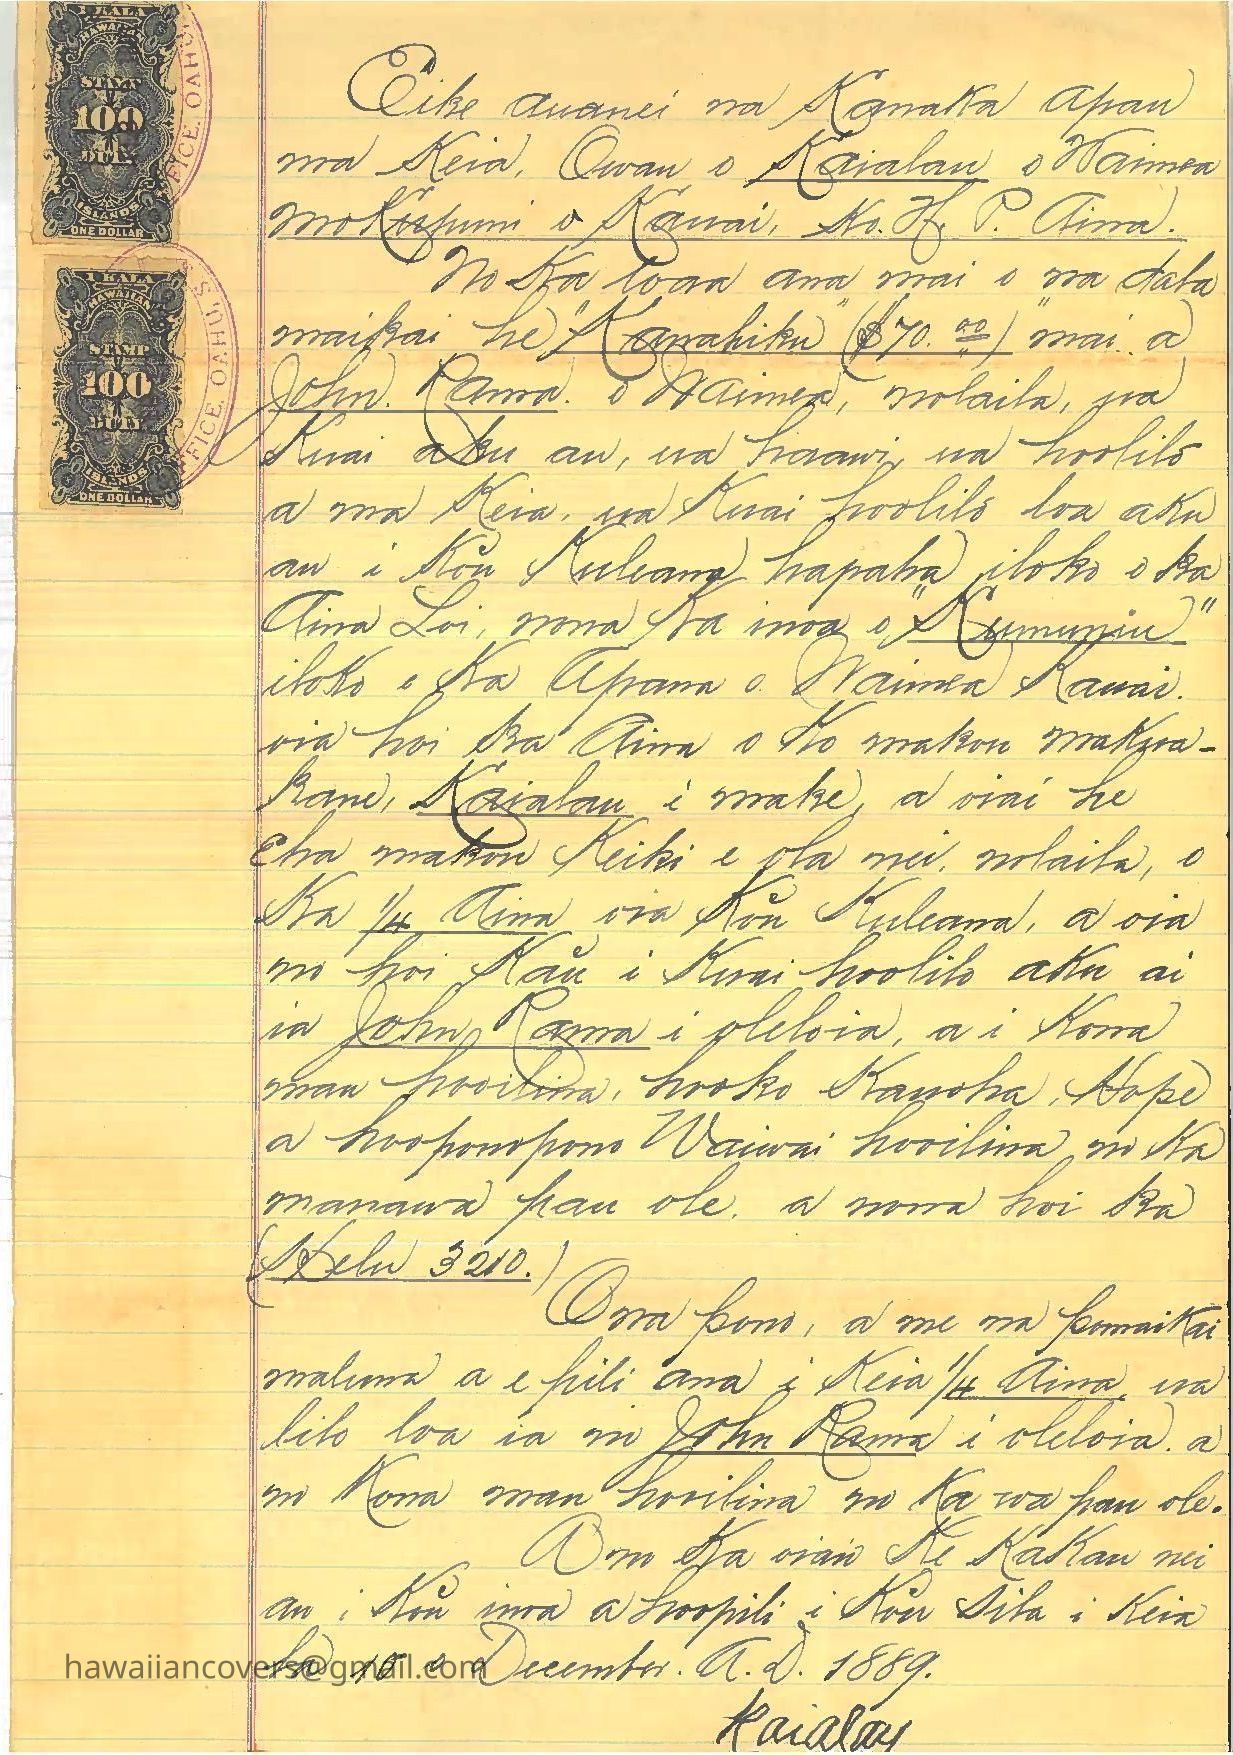 1 KALA
HAWAIIAN
STAMP
100
DUTY
ISLANDS
ONE DOLLAR
FFICE. OAHU
1 KALA
HAWAIIAN
STAMP
100
DUTY
ISLANDS
ONE DOLLAR
FFICE. OAHU. S
Eike auanei na Kanaka apau
ma Keia, Owau o Kaialau o Waimea
Mokupuni o Kauai, Ko. H. P. Aina.
No Ka loaa ana mai o na dala
maikai he "Kanahiku" ($70.00) mai a
John. Rama. o Waimea, nolaila, ua
Kuai aku au, ua haawi, ua hoolilo
a ma Keia, ua Kuai hoolilo loa aku
au i Ko'u Kuleana hapaha iloko o ka
Aina Loi, nona Ka inoa o "Kumuniu"
iloko o Ka Apana o Waimea Kauai.
oia hoi ka Aina o Ko makou makua-
kane, Kaialau i make, a oiai he
Eha makou Keiki e ola nei, nolaila, o
Ka 1/4 Aina oia Ko'u Kuleana, a oia
no hoi Ka'u i Kuai hoolilo aku ai
ia John Rama i oleloia, a i Kona
mau hooilina, hooko Kauoha, Hope
a hooponopono Waiwai hooilina no Ka
manawa pau ole, a nona hoi ka
(Helu 3210.)
Ona pono, a me na pomaikai
maluna a e pili ana i Keia 1/4 Aina, ua
lilo loa ia no John Rama i oleloia. a
no Kona mau hooilina no Ka wa pau ole.
A no Ka oiaio Ke KaKau nei
au i Ko'u inoa a hoopili i Ko'u Sila i Keia
la 10 o December. A.D. 1889.
hawaiiancovers@gmail.com
Kaialau